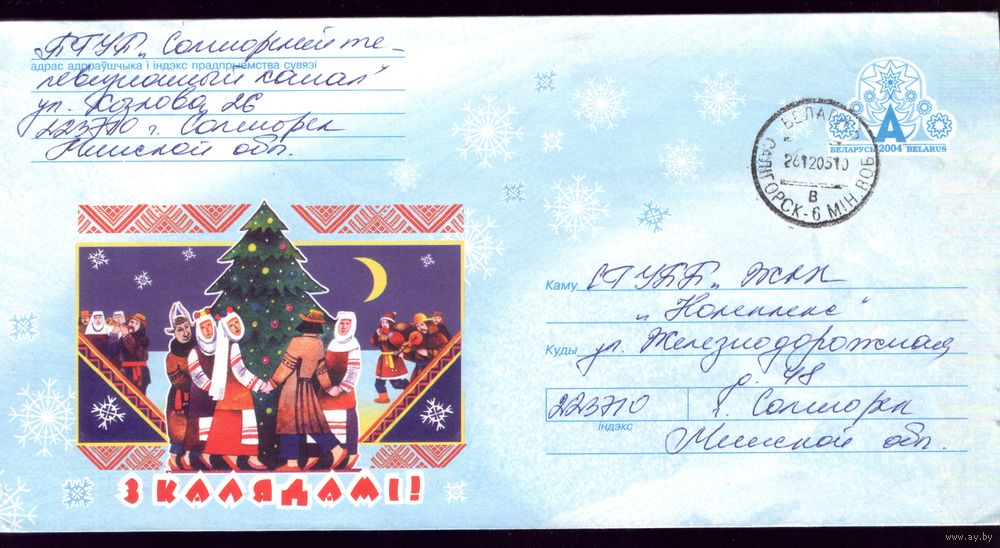 БТУП „Солигорский те-
адрас адпраўшчыка і індэкс прадпрыемства сувязі
левизионный канал"
ул. Козлова 26
223710 г. Солигорск
Минской обл.
БЕЛАРУСЬ 2004 BELARUS
А
БЕЛАРУСЬ
261205 10
В
САЛІГОРСК-6 МІН. ВОБ
Каму СТУПП ЖКХ
„Комплекс"
Куды ул. Железнодорожная
д. 48
223710 г. Солигорск
індэкс
Минской обл.
З КАЛЯДАМІ!
www.ay.by